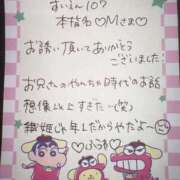 すいえん107
本指名♡Mさま♡
お誘い頂いてありがとう
ございました!
お兄さんのやんちゃ時代のお話
想像以上すぎたー(笑)
織姫じゃ年1だからやだよ〜
♡ふうか♡